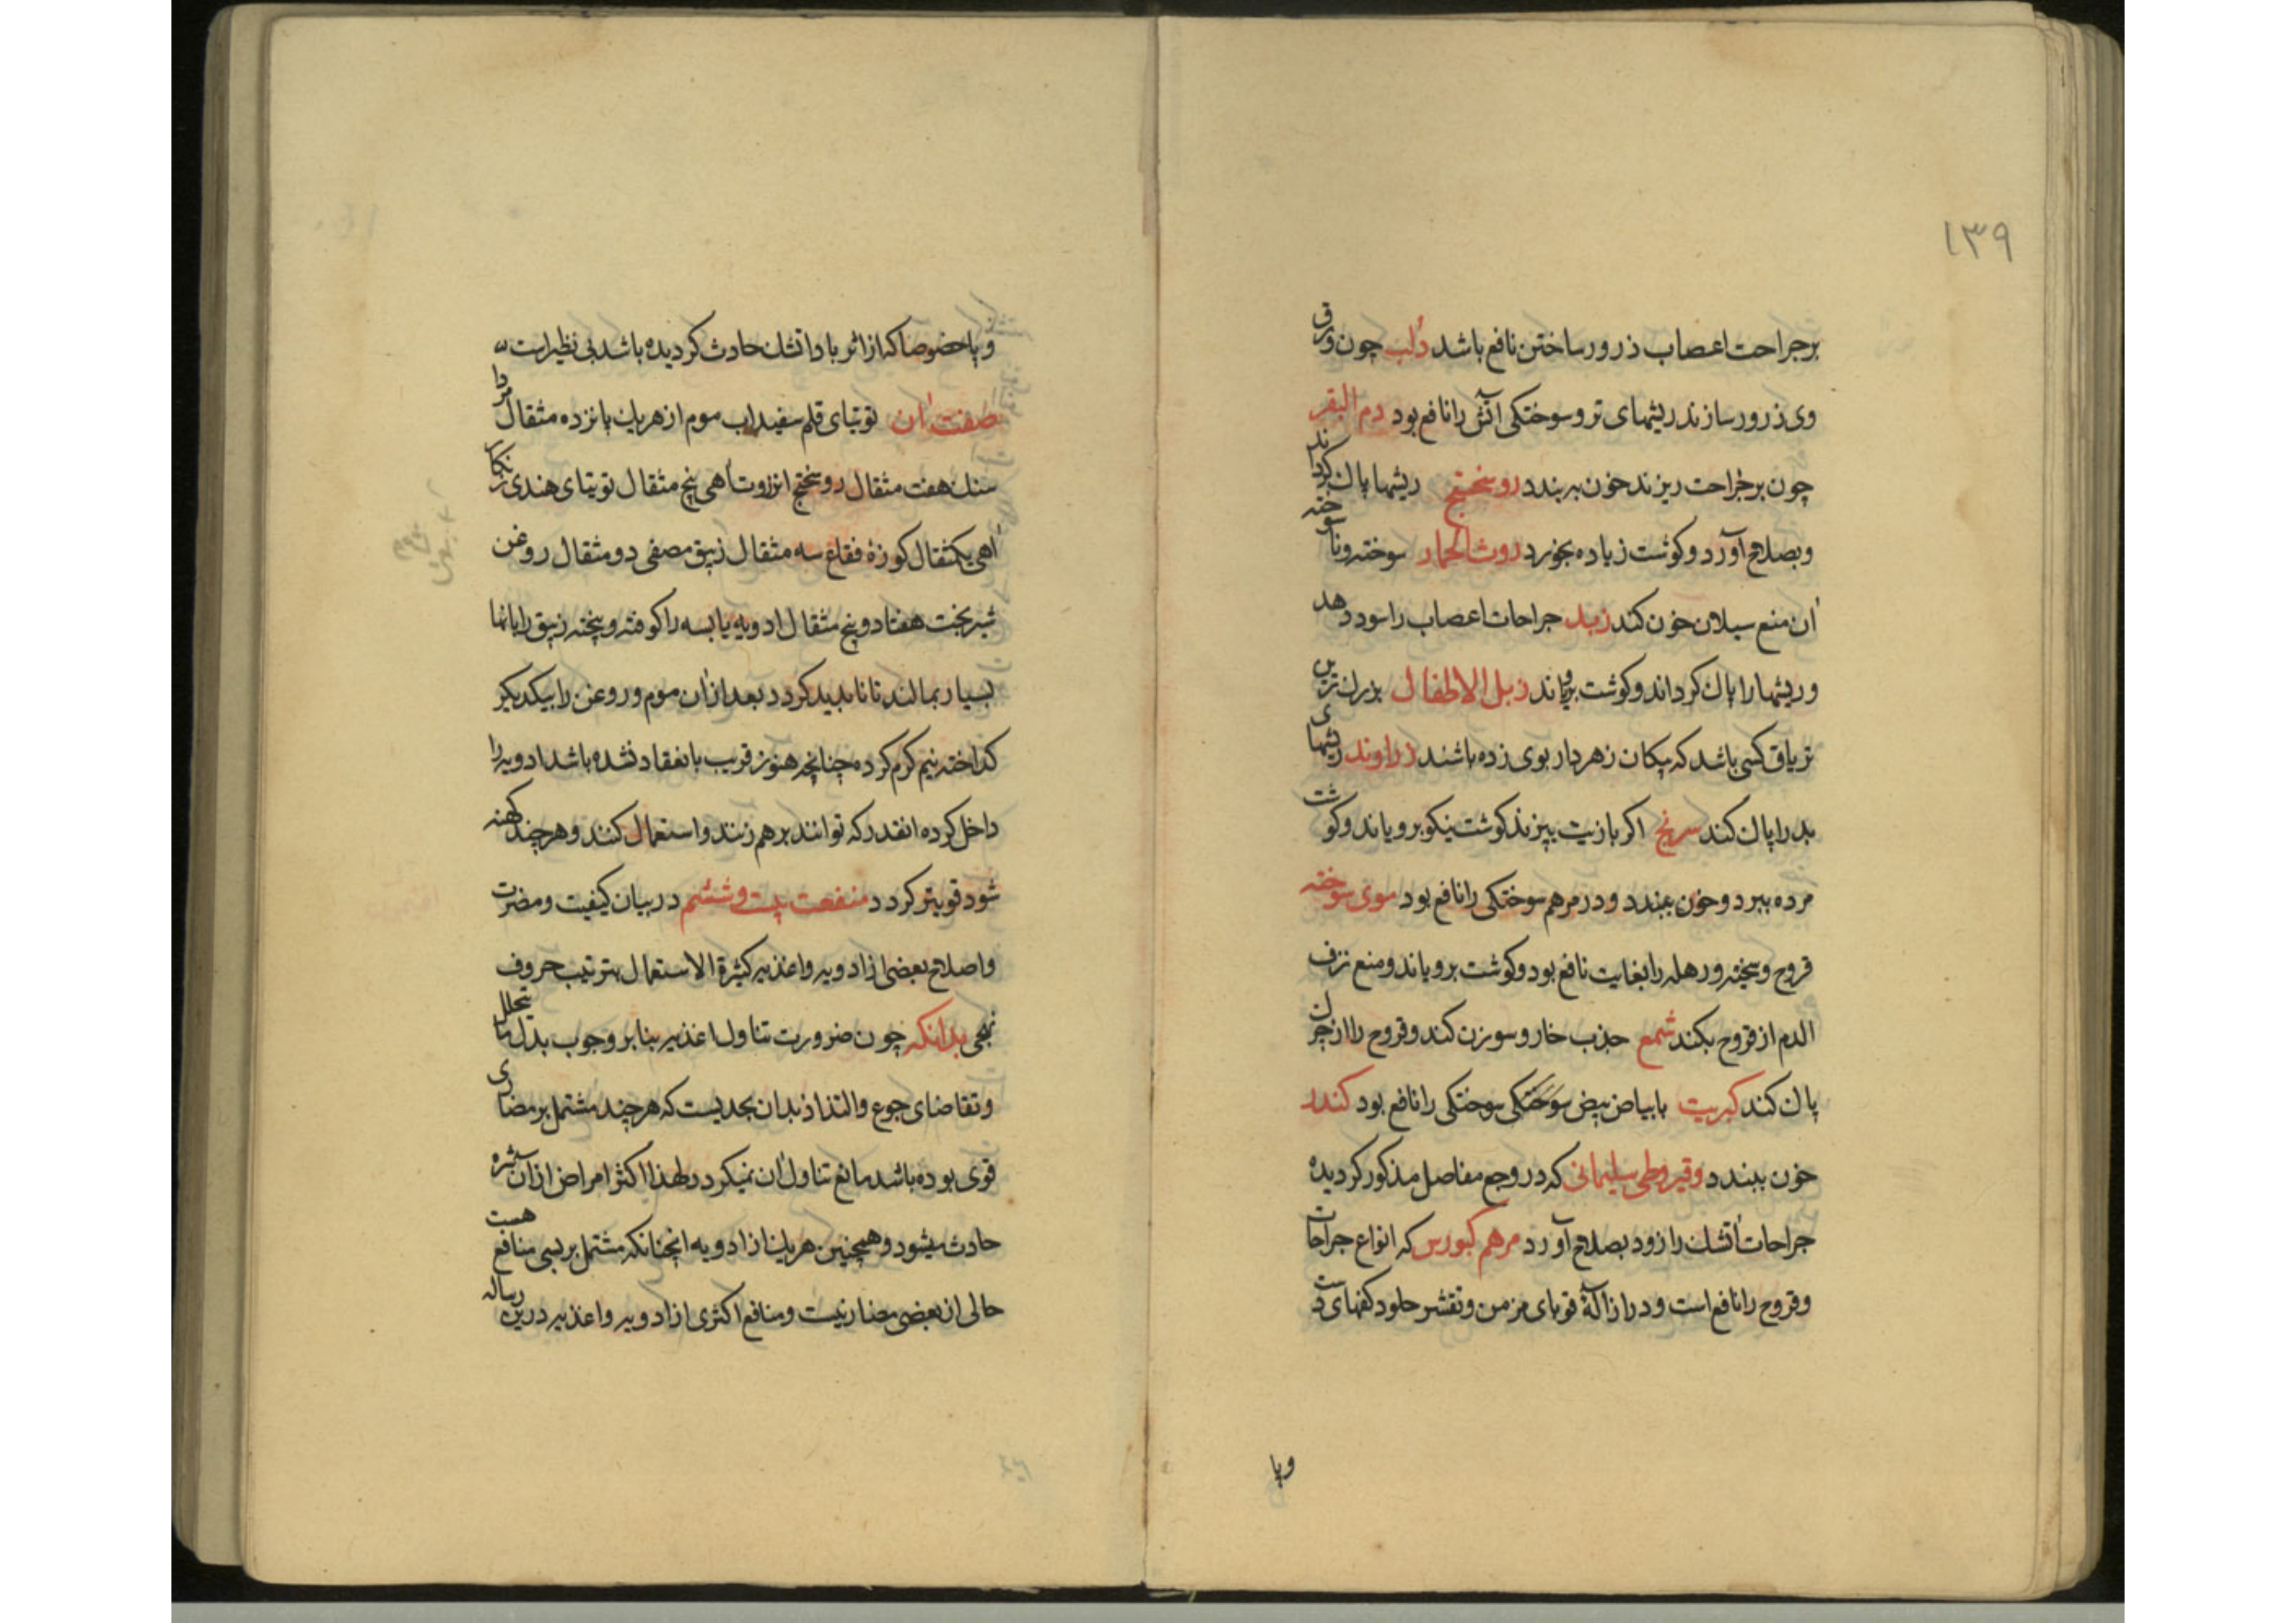 ١٣٩
برجراحت اعصاب ذرور ساختن نافع باشد دلب چون ورق
وی ذرور سازند ریشهای تر و سوختکی آتش را نافع بود دم البقر
چون بر جراحت ریزند خون به بندد روسختج ریشها پاک کرداند
وبصلاح آورد وکوشت زیاده بخورد روث الحمار سوخته وناسوخته
آن منع سیلان خون کند زبد جراحات اعصاب را سود دهد
وریشها را پاک کرداند وکوشت برویاند زبل الاطفال بزرک ترین
تریاق کسی باشد که پیکان زهردار بوی زده باشند زراوند ریشهای
بد را پاک کند سرنج اکر بازیت بپزند کوشت نیکو برویاند وکوشت
مرده ببرد وخون ببندد ودر مرهم سوختکی را نافع بود موی سوخته
قروح وسخته ورهله را بغایت نافع بود وکوشت برویاند ومنع نزف
الدم از قروح بکند شمع جذب خار وسوزن کند وقروح را از چرک
پاک کند کبریت با بیاض بیض سوختکی سوختکی را نافع بود کندر
خون ببندد وقیروطی سلیمانی که در وجع مفاصل مذکور کردیده
جراحات آتشک را زود بصلاح آورد مرهم کبورس که انواع جراحات
وقروح را نافع است ودر ازالهٔ قوبای مزمن وتقشر جلود کفهای دست
وپا
وپا خصوصا که از اثر باد آتشک حادث کردیده باشد بی نظیر است
صفت آن توتیای قلم سفیداب موم از هریک پانزده مثقال مردا
سنک هفت مثقال روسختج انزروت اهی پنج مثقال توتیای هندی زنکار
اهی یکمثقال کوزهٔ فقاع سه مثقال زیبق مصفی دو مثقال روغن
شیربخت هفتاد وپنج مثقال ادویه یابسه را کوفته وپیخته زیبق را بانها
بسیار بمالند تا ناپدید کردد بعد ازان موم وروغن را بیکدیکر
کداخته نیم کرم کرده چنانچه هنوز قریب بانعقاد نشده باشد ادویه را
داخل کرده انقدر که توانند بر هم زنند واستعمال کنند وهرچند کهنه
شود قویتر کردد منفعت بیست وششم در بیان کیفیت ومضرت
واصلاح بعضی از ادویه واغذیه کثیرة الاستعمال بترتیب حروف
تهجی بدانکه چون ضرورت تناول اغذیه بنا بر وجوب بدل ما یتحلل
وتقاضای جوع والتذاذ بدان بحدیست که هرچند مشتمل بر مضاری
قوی بوده باشد مانع تناول آن نمیکردد لهذا اکثر امراض ازان سفره
حادث میشود وهمچنین هریک از ادویه انچنانکه مشتمل بر بسی منافع هست
خالی از بعضی مضار نیست ومنافع اکثری از ادویه واغذیه درین رساله